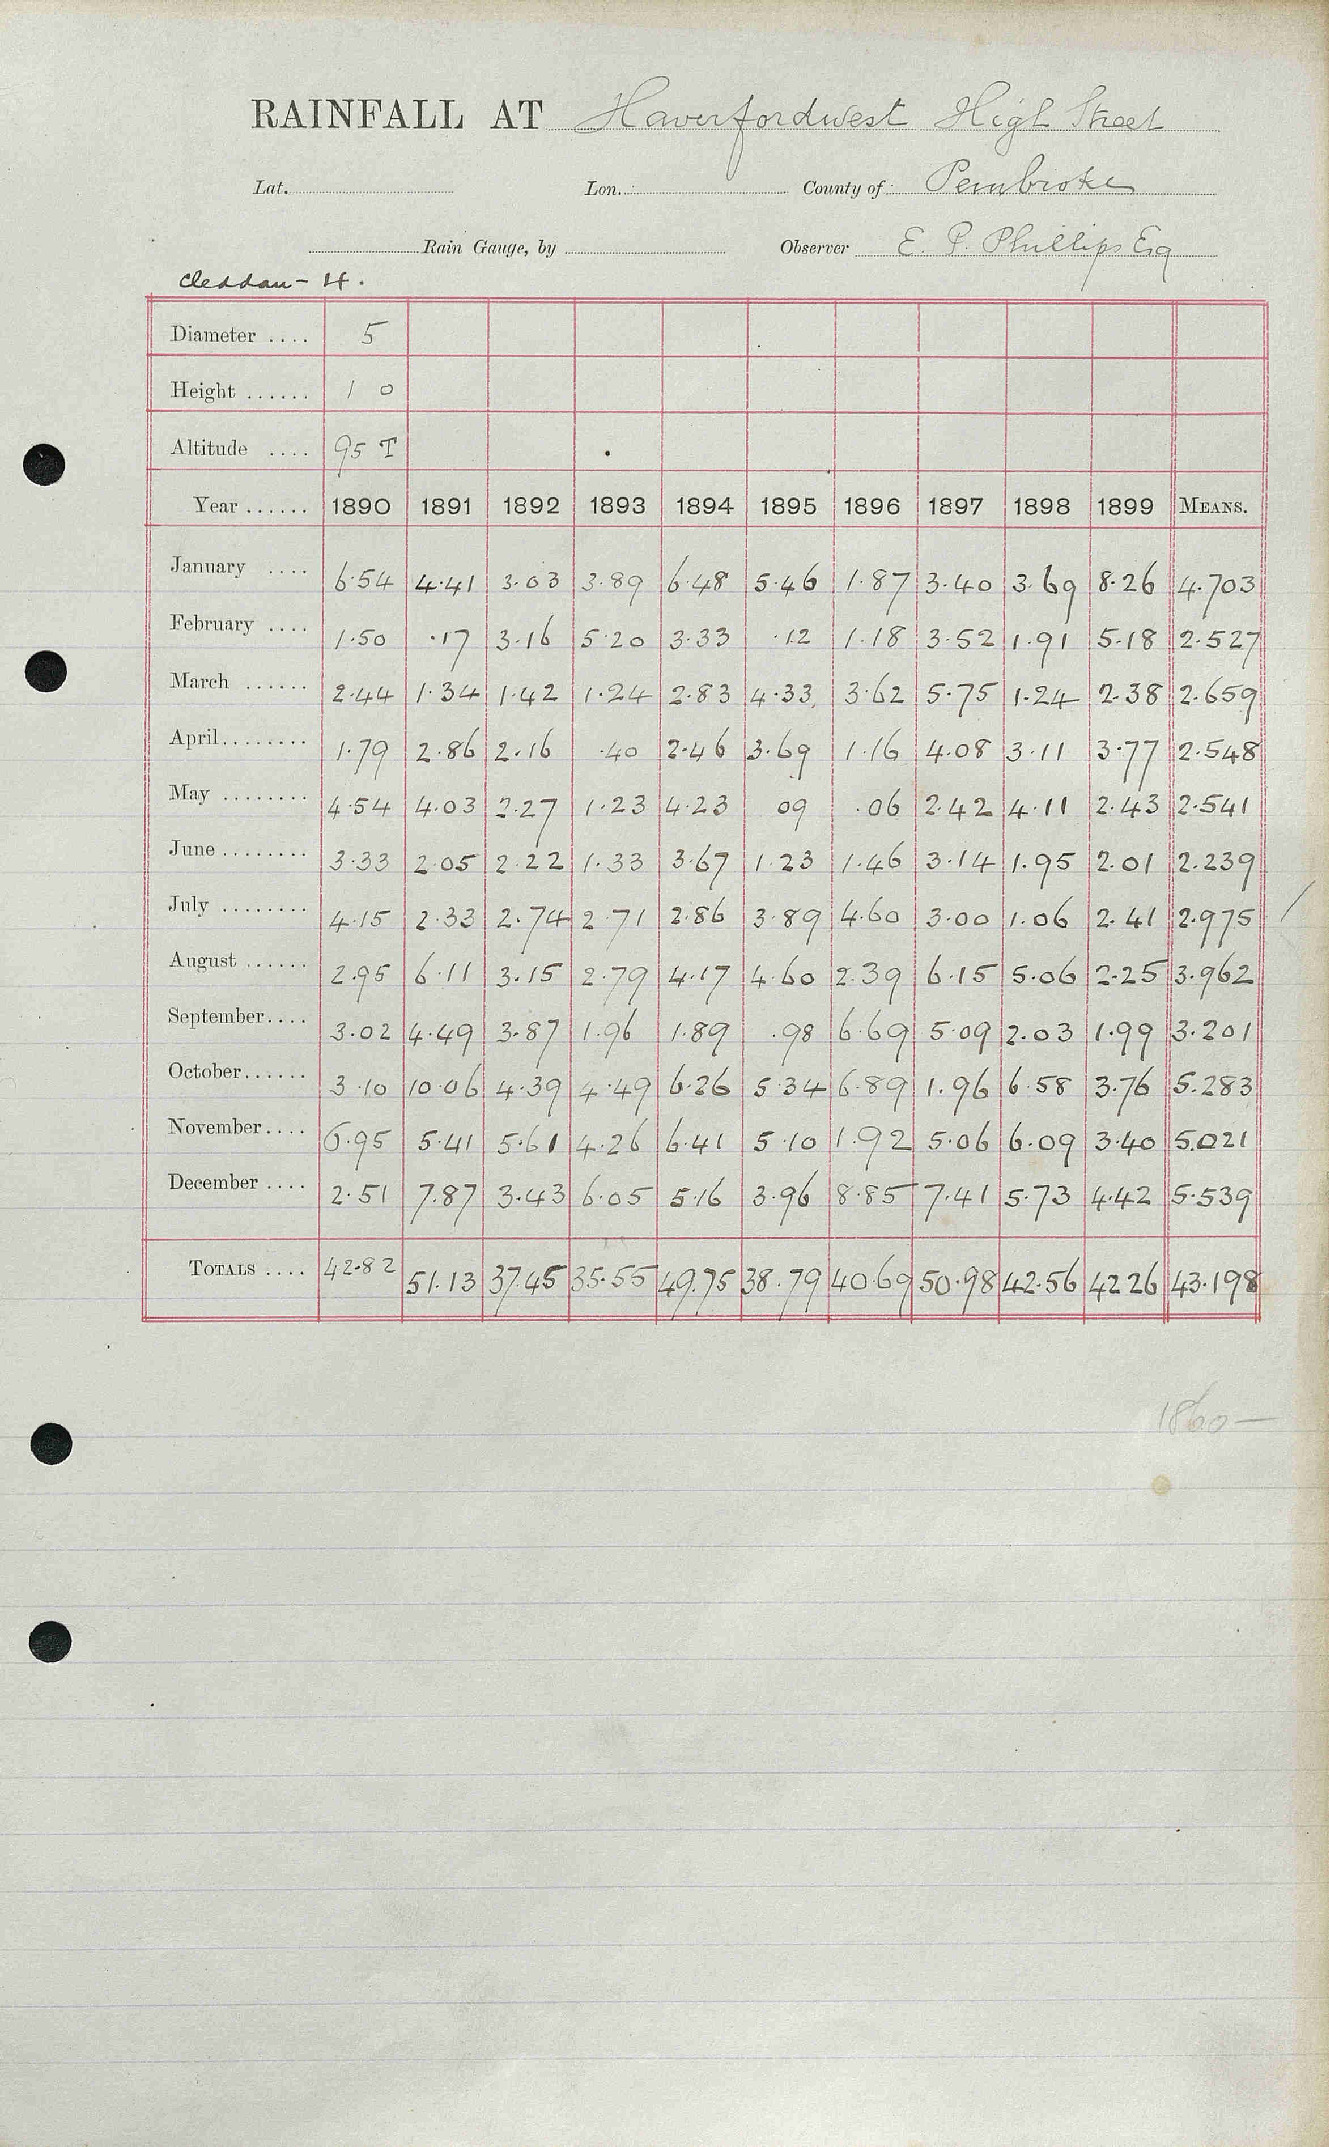 RAINFALL AT Haverfordwest High Street
Lat. Lon. County of Pembroke
Rain Gauge, by Observer E. P. Phillips Esq
Cleddau - H.
Diameter .... 5
Height ...... 1 0
Altitude .... 95 T
Year ...... 1890 1891 1892 1893 1894 1895 1896 1897 1898 1899 MEANS.
January .... 6.54 4.41 3.03 3.89 6.48 5.46 1.87 3.40 3.69 8.26 4.703
February .... 1.50 .17 3.16 5.20 3.33 .12 1.18 3.52 1.91 5.18 2.527
March ...... 2.44 1.34 1.42 1.24 2.83 4.33 3.62 5.75 1.24 2.38 2.659
April........ 1.79 2.86 2.16 .40 2.46 3.69 1.16 4.08 3.11 3.77 2.548
May ........ 4.54 4.03 2.27 1.23 4.23 09 .06 2.42 4.11 2.43 2.541
June ........ 3.33 2.05 2.22 1.33 3.67 1.23 1.46 3.14 1.95 2.01 2.239
July ........ 4.15 2.33 2.74 2.71 2.86 3.89 4.60 3.00 1.06 2.41 2.975 /
August ...... 2.95 6.11 3.15 2.79 4.17 4.60 2.39 6.15 5.06 2.25 3.962
September.... 3.02 4.49 3.87 1.96 1.89 .98 6.69 5.09 2.03 1.99 3.201
October...... 3.10 10.06 4.39 4.49 6.26 5.34 6.89 1.96 6.58 3.76 5.283
November.... 6.95 5.41 5.61 4.26 6.41 5.10 1.92 5.06 6.09 3.40 5.021
December .... 2.51 7.87 3.43 6.05 5.16 3.96 8.85 7.41 5.73 4.42 5.539
TOTALS .... 42.82 51.13 37.45 35.55 49.75 38.79 40.69 50.98 42.56 42 26 43.198
1860 —